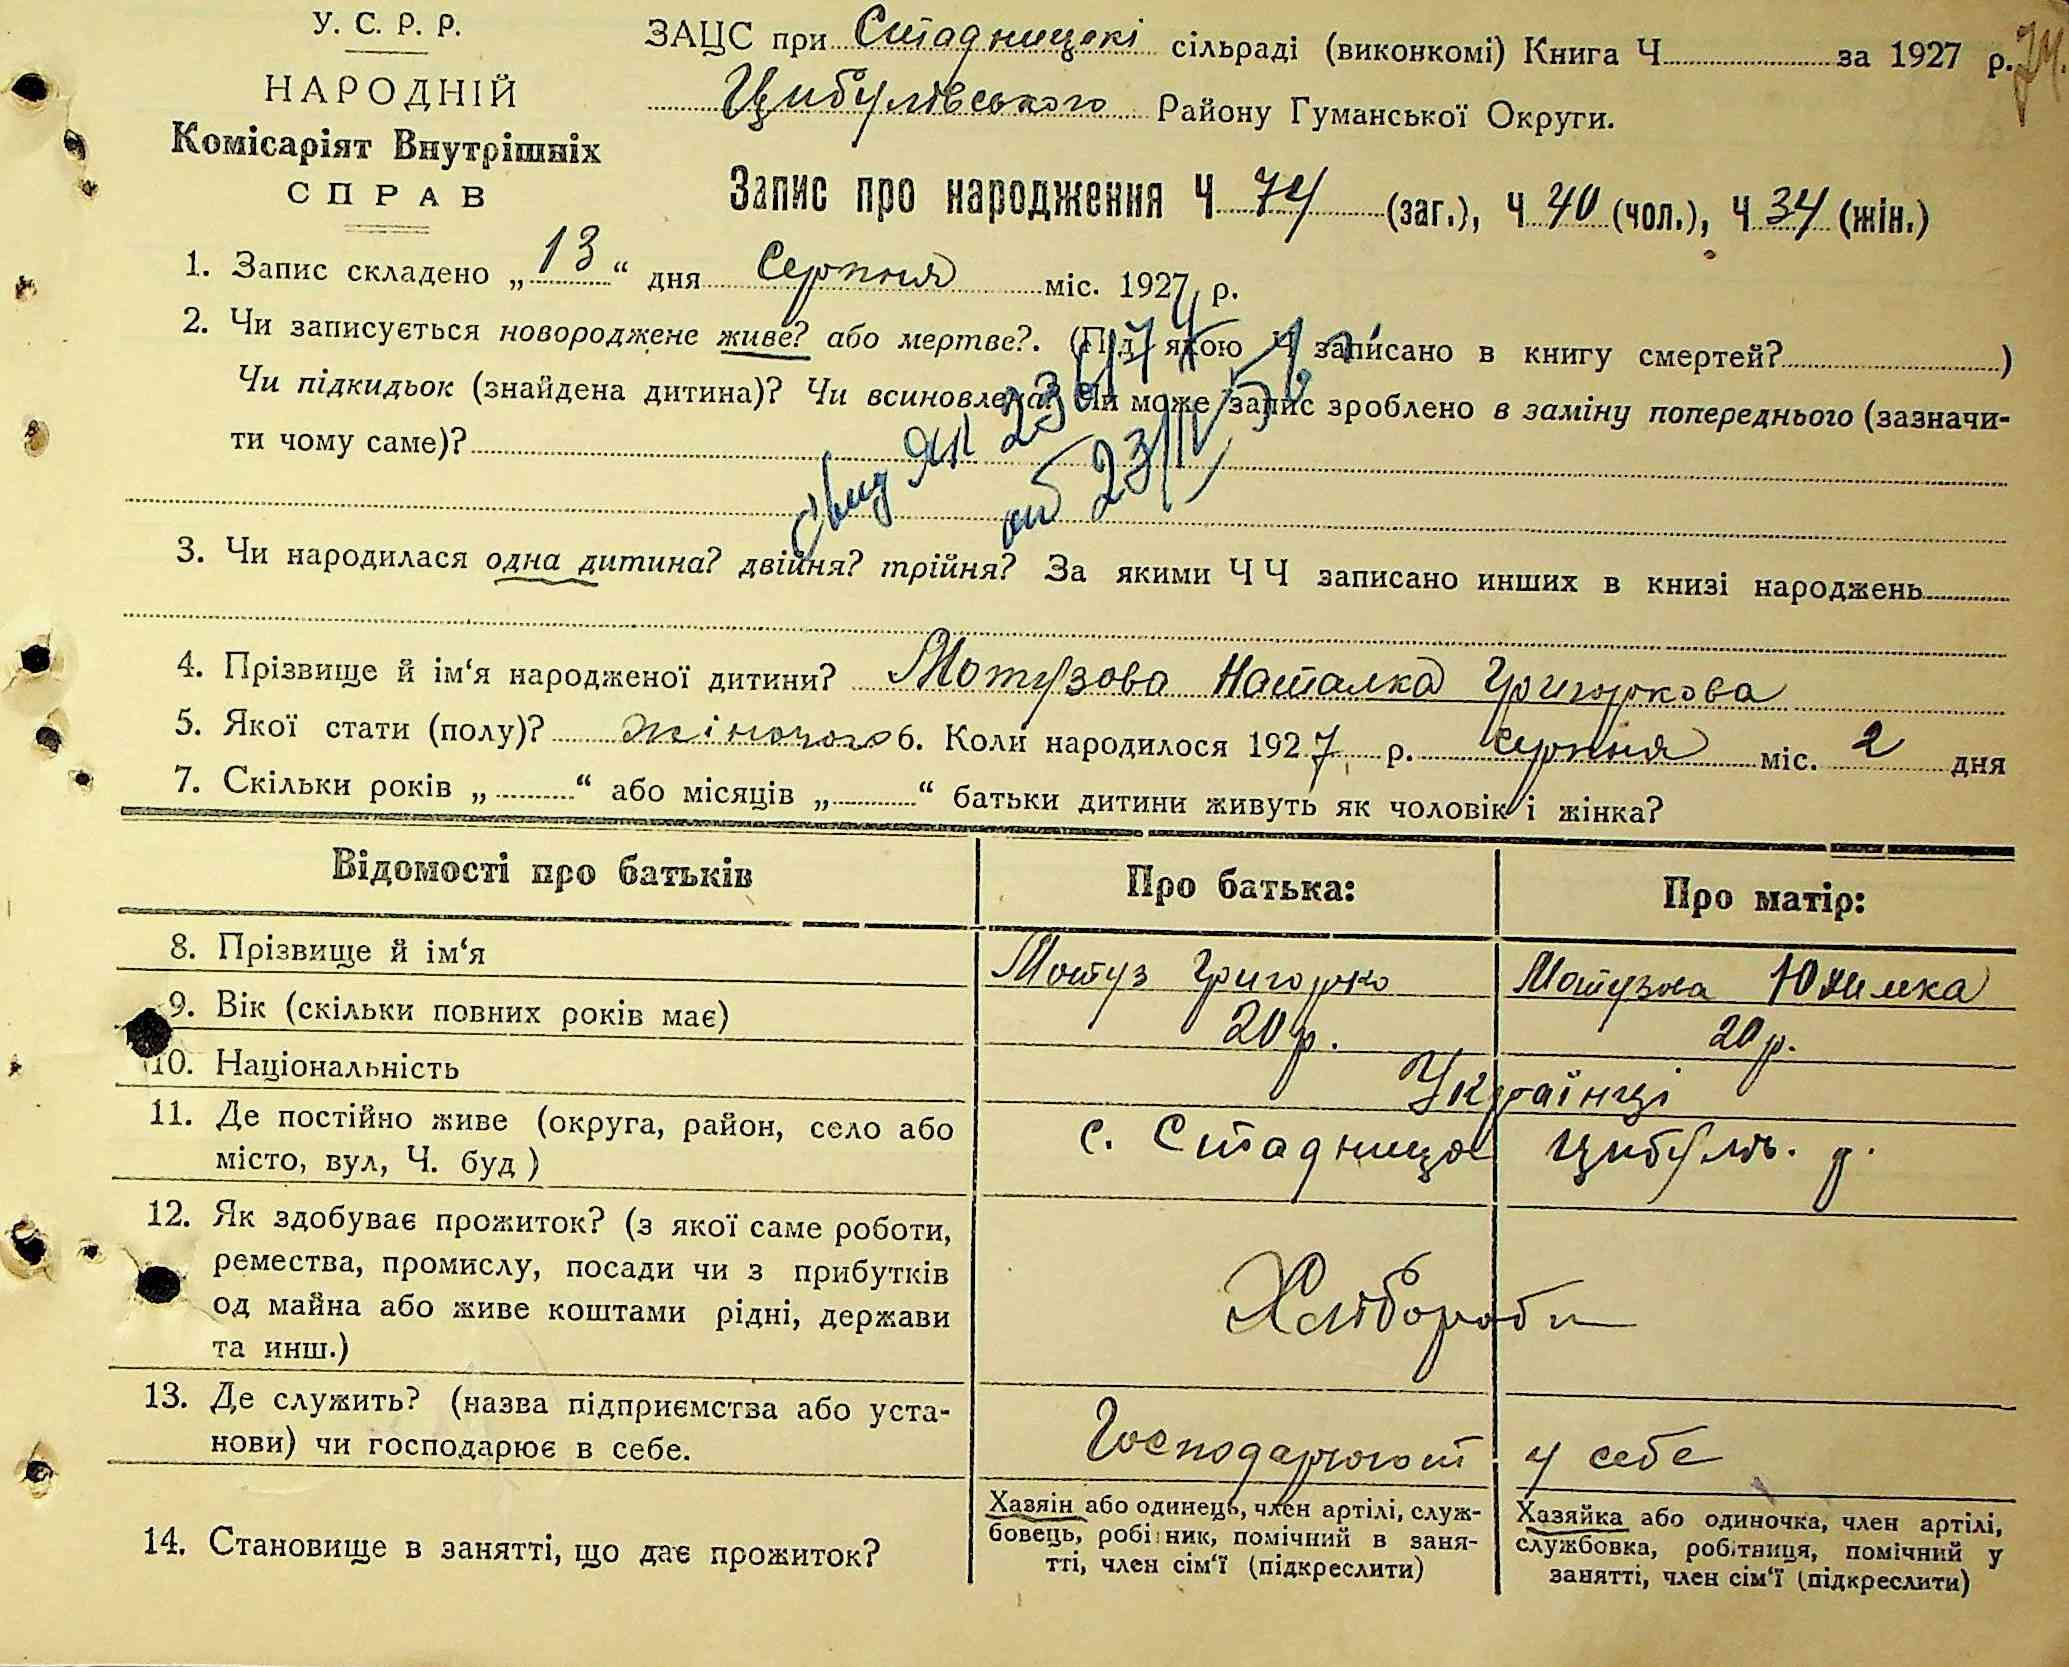 У. С. Р. Р.
НАРОДНІЙ
Комісаріят Внутрішніх
СПРАВ
74.
ЗАЦС при Стадницькі сільраді (виконкомі) Книга Ч. за 1927 р.
Цибулівського Району Гуманської Округи.
Запис про народження Ч 74 (заг.), Ч 40 (чол.), Ч 34 (жін.)
1. Запис складено „13“ дня Серпня міс. 1927 р.
2. Чи записується новороджене живе? або мертве?. (Під якою Ч записано в книгу смертей? )
Чи підкидьок (знайдена дитина)? Чи всиновлена? Чи може запис зроблено в заміну попереднього (зазначи-
ти чому саме)?
3. Чи народилася одна дитина? двійня? трійня? За якими ЧЧ записано инших в книзі народжень
4. Прізвище й ім‘я народженої дитини? Мотузова Наталка Григоркова
5. Якої стати (полу)? жіночого 6. Коли народилося 1927 р. серпня міс. 2 дня
7. Скільки років „ “ або місяців „ “ батьки дитини живуть як чоловік і жінка?
Відомості про батьків Про батька: Про матір:
8. Прізвище й ім‘я Мотуз Григорко Мотузка
9. Вік (скільки повних років має) 20 р. 20 р.
10. Національність Українці
11. Де постійно живе (округа, район, село або
місто, вул, Ч. буд ) с. Стадниця Цибулів. р.
12. Як здобуває прожиток? (з якої саме роботи,
ремества, промислу, посади чи з прибутків
од майна або живе коштами рідні, держави
та инш.) Хлібороби
13. Де служить? (назва підприємства або уста-
нови) чи господарює в себе. Господарюют у себе
14. Становище в занятті, що дає прожиток?
Хазяін або одинець, член артілі, служ-
бовець, робітник, помічний в заня-
тті, член сім‘ї (підкреслити)
Хазяйка або одиночка, член артілі,
службовка, робітниця, помічний у
занятті, член сім‘ї (підкреслити)